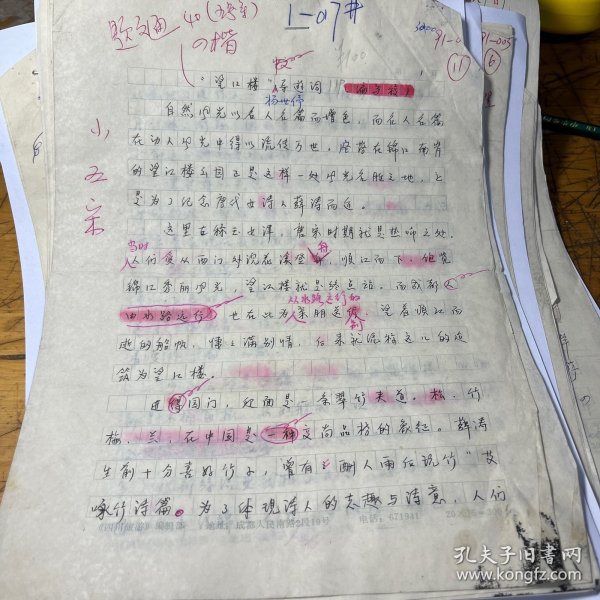 题文通 40(楼亲)
1-07#
91-005
11
6
的楷
"望江楼"导游词
杨世伟
自然风光以名人名篇而增色,而名人名篇
在动人风光中得以流传万世,座落在锦江南岸
的望江楼公园正是这样一处风光名胜之地,它
是为了纪念唐代女诗人薛涛而建。
这里在称玉女津,唐宋时期就是热闹之处。
当时
人们爱从西门外浣花溪登舟,顺江而下,饱览
舟
锦江秀丽风光,望江楼就是终点站,而成都人
从水路远行的
由水路远行,也在此为亲朋送别,望着顺江而
别
逝的船帆,怀上满别情,后来就流传
筑为望江楼。
进得园门,迎面是一条翠竹夹道。松、竹
梅、兰,在中国是一种高尚品格的象征。薛涛
生前十分喜好竹子,曾有"酬人雨后玩竹"
咏竹诗篇。为了体现诗人的志趣与诗意,人们
小五宋
《四川旅游》编辑部
地址:成都人民南路
电话:671941
20×15=300
孔夫子旧书网
www.kongfz.com